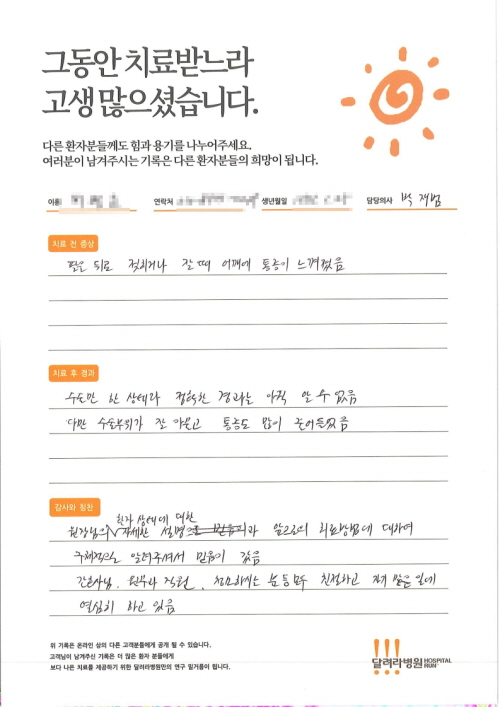 그동안 치료받느라
고생 많으셨습니다.
다른 환자분들께도 힘과 용기를 나누어주세요.
여러분이 남겨주시는 기록은 다른 환자분들의 희망이 됩니다.
이름 연락처 생년월일 담당의사 박재범
치료 전 증상
팔을 뒤로 젖히거나 잘 때 어깨에 통증이 느껴졌음
치료 후 경과
수술만 한 상태라 정확한 경과는 아직 알 수 없음
다만 수술부위가 잘 아물고 통증도 많이 줄어들었음
감사와 칭찬
환자 상태에 대한
원장님의 자세한 설명과 앞으로의 치료방법에 대하여
구체적으로 알려주셔서 믿음이 갔음
간호사님, 원무과 직원, 청소하시는 분 등 모두 친절하고 각자 맡은 일에
열심히 하고 있음
위 기록은 온라인 상의 다른 고객분들에게 공개 될 수 있습니다.
고객님이 남겨주신 기록은 더 많은 환자 분들에게
보다 나은 치료를 제공하기 위한 달려라병원만의 연구 밑거름이 됩니다.
달려라병원 HOSPITAL RUN